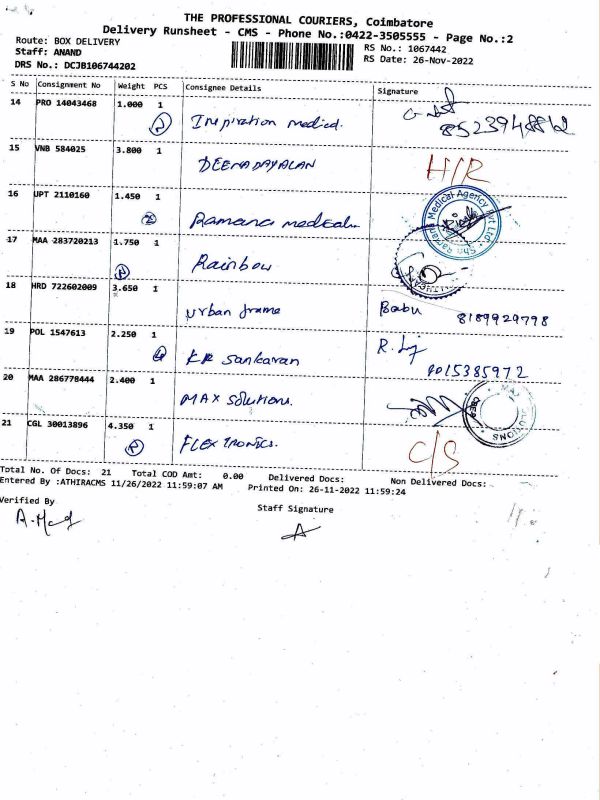 THE PROFESSIONAL COURIERS, Coimbatore
Delivery Runsheet - CMS - Phone No.:0422-3505555 - Page No.:2
Route: BOX DELIVERY
Staff: ANAND
DRS No.: DCJB106744202
RS No.: 1067442
RS Date: 26-Nov-2022
S No Consignment No Weight PCS Consignee Details Signature
14 PRO 14043468 1.000 1 Inspiration medical. 8523948812
15 VNB 584025 3.800 1 DEENADAYALAN H/R
16 UPT 2110160 1.450 1 Ramana medical Medical Agency Pvt Ltd
17 MAA 283720213 1.750 1 Rainbow
18 HRD 722602009 3.650 1 urban frame Babu 8189929798
19 POL 1547613 2.250 1 KR Sankaran 9015385972
20 MAA 286778444 2.400 1 MAX Solutions.
21 CGL 30013896 4.350 1 FLEXTRONICS. C/S
Total No. Of Docs: 21 Total COD Amt: 0.00 Delivered Docs: Non Delivered Docs:
Entered By :ATHIRACMS 11/26/2022 11:59:07 AM Printed On: 26-11-2022 11:59:24
Verified By
Staff Signature